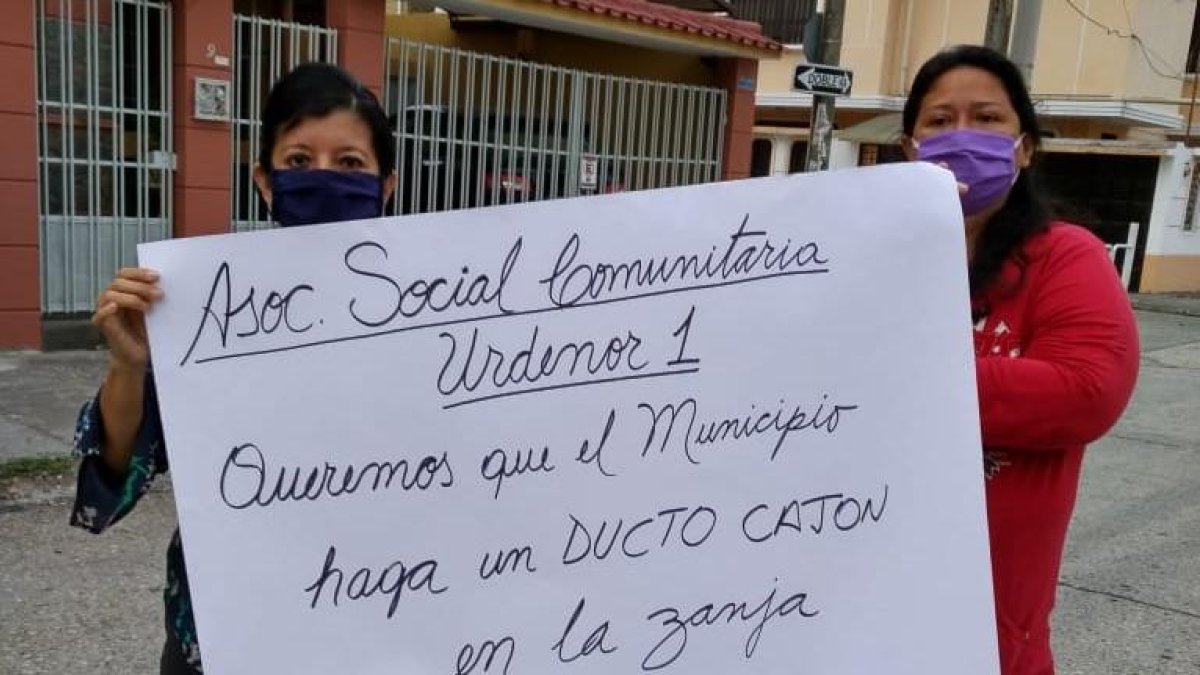 9
DOBLE VIA
Asoc. Social Comunitaria
Urdenor 1
Queremos que el Municipio
haga un DUCTO CAJON
en la zanja